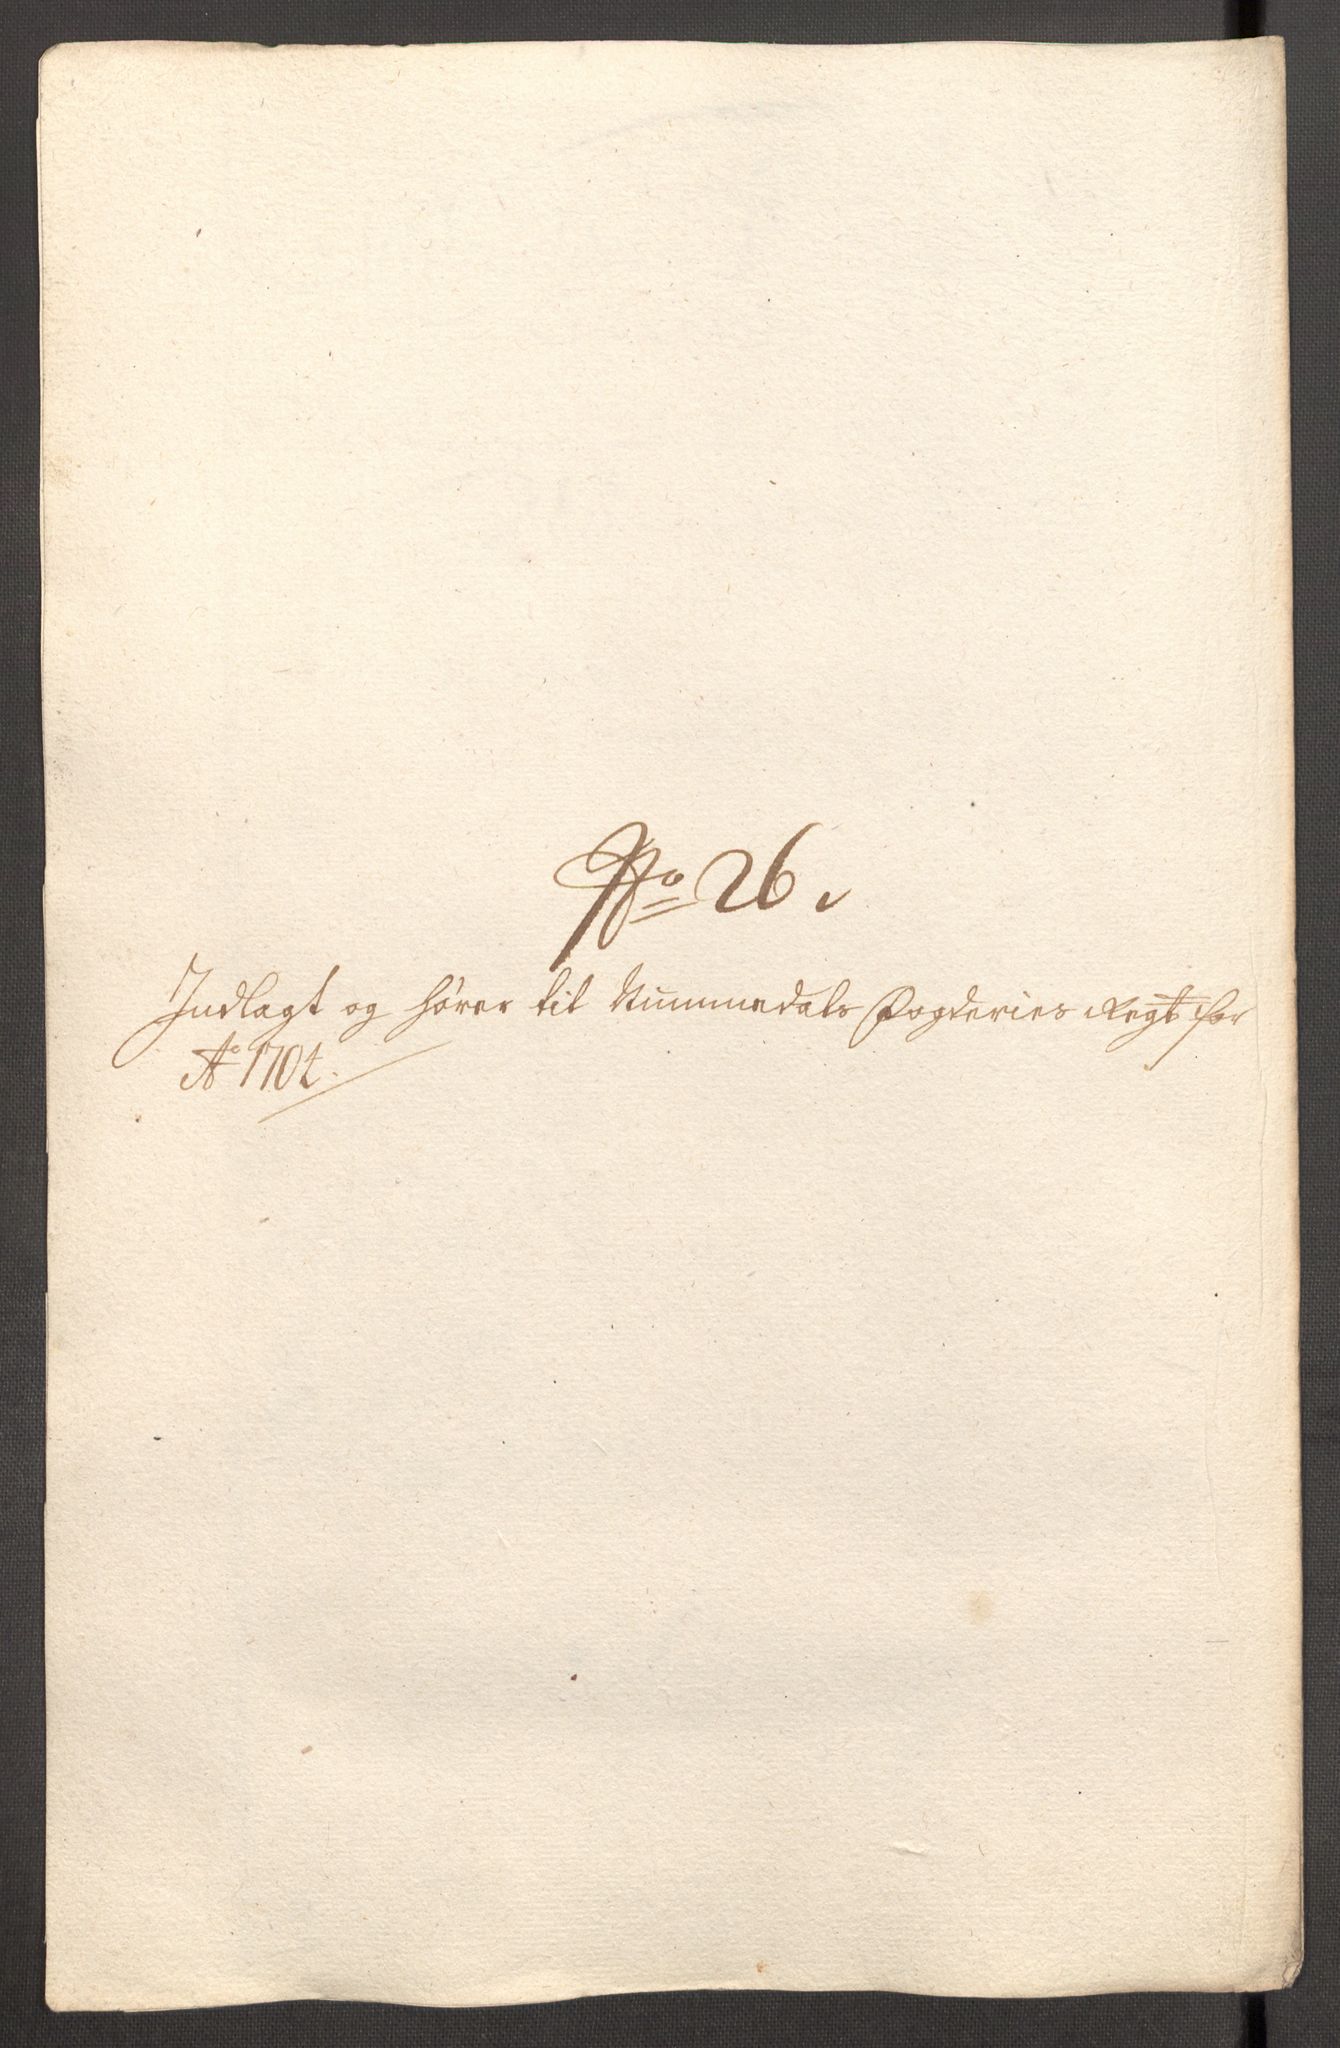 No 26.
Indlagt og hører til Nummedals Fogderies Regt for
Ao 1704.